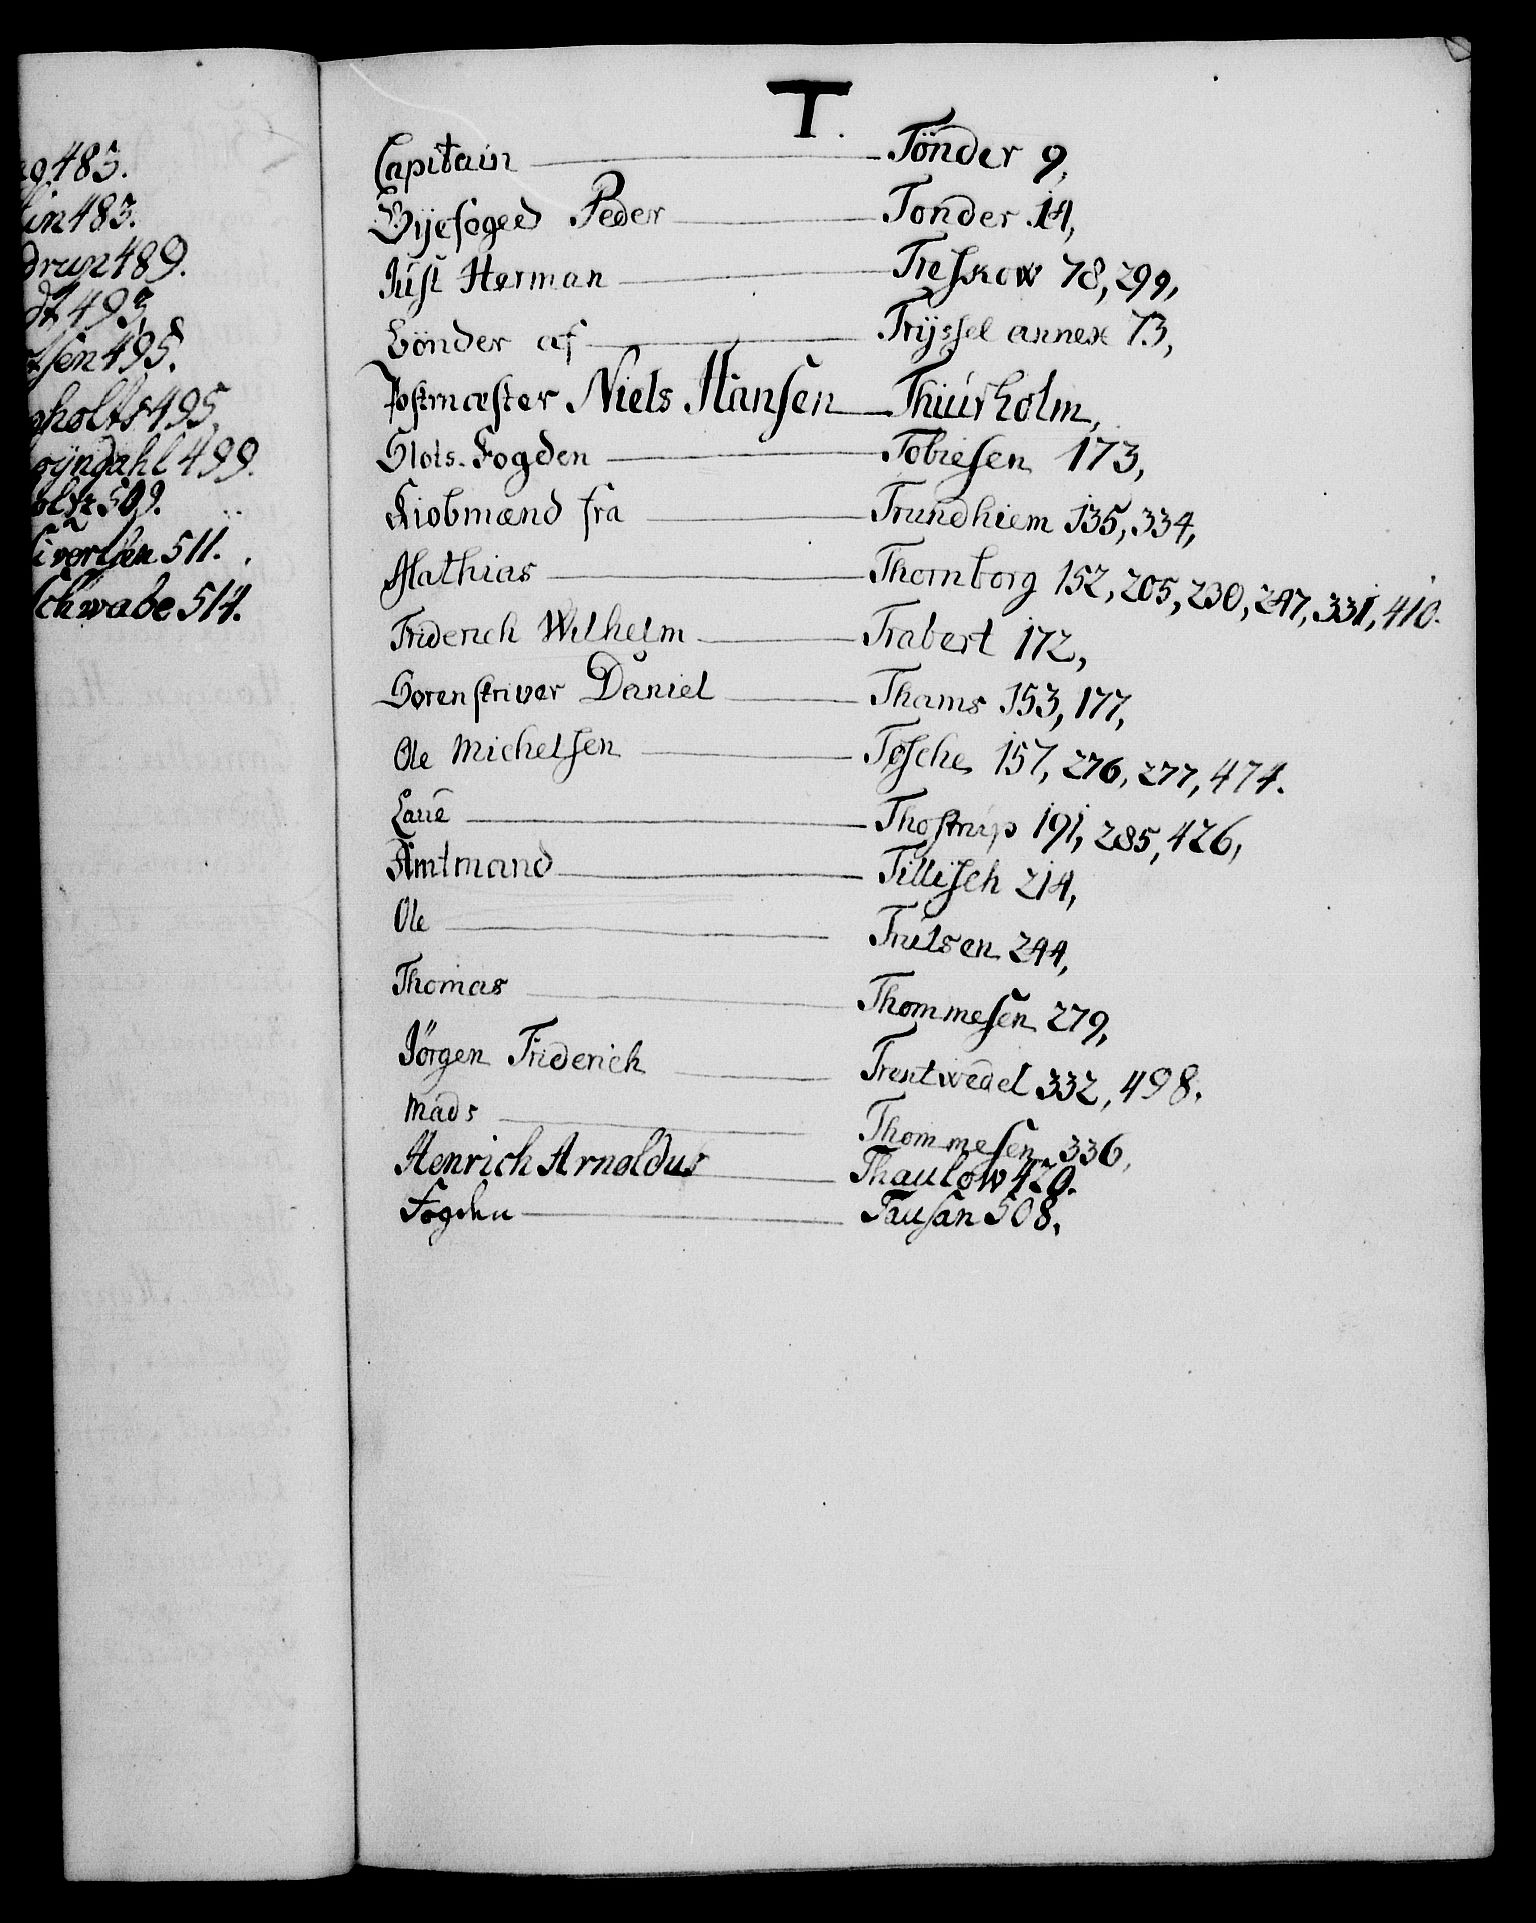 483.
in 483.
drup 489.
dt 493,
sen 495.
holts 495,
øyndahl 499.
holtz 509.
Civertsen 511.
Schwabe 514.
T.
Capitain — Tönder 9,
Byefoged Peder — Tonder 14,
Just Herman — Treskow 78, 299,
Bönder af — Trÿssel annex 73,
Postmæster Niels Hansen — Thiurholm,
Slots-Fogden — Tobiesen 173,
Kiobmænd fra — Trundhiem 135, 334,
Mathias — Thornborg 152, 205, 230, 247, 331, 410.
Friderich Wilhelm — Trabert 172,
Sorenskriver Daniel — Thams 153, 177,
Ole Michelsen — Tøsche 157, 276, 277, 474.
Laue — Thostrup 191, 285, 426,
Amtmand — Tillisch 214,
Ole — Trulsen 244,
Thomas — Thommesen 279,
Jörgen Friderich — Trentwedel 332, 498.
Mads — Thommesen 336,
Henrich Arnoldus — Thaulow 420.
Fogden — Tausan 508,